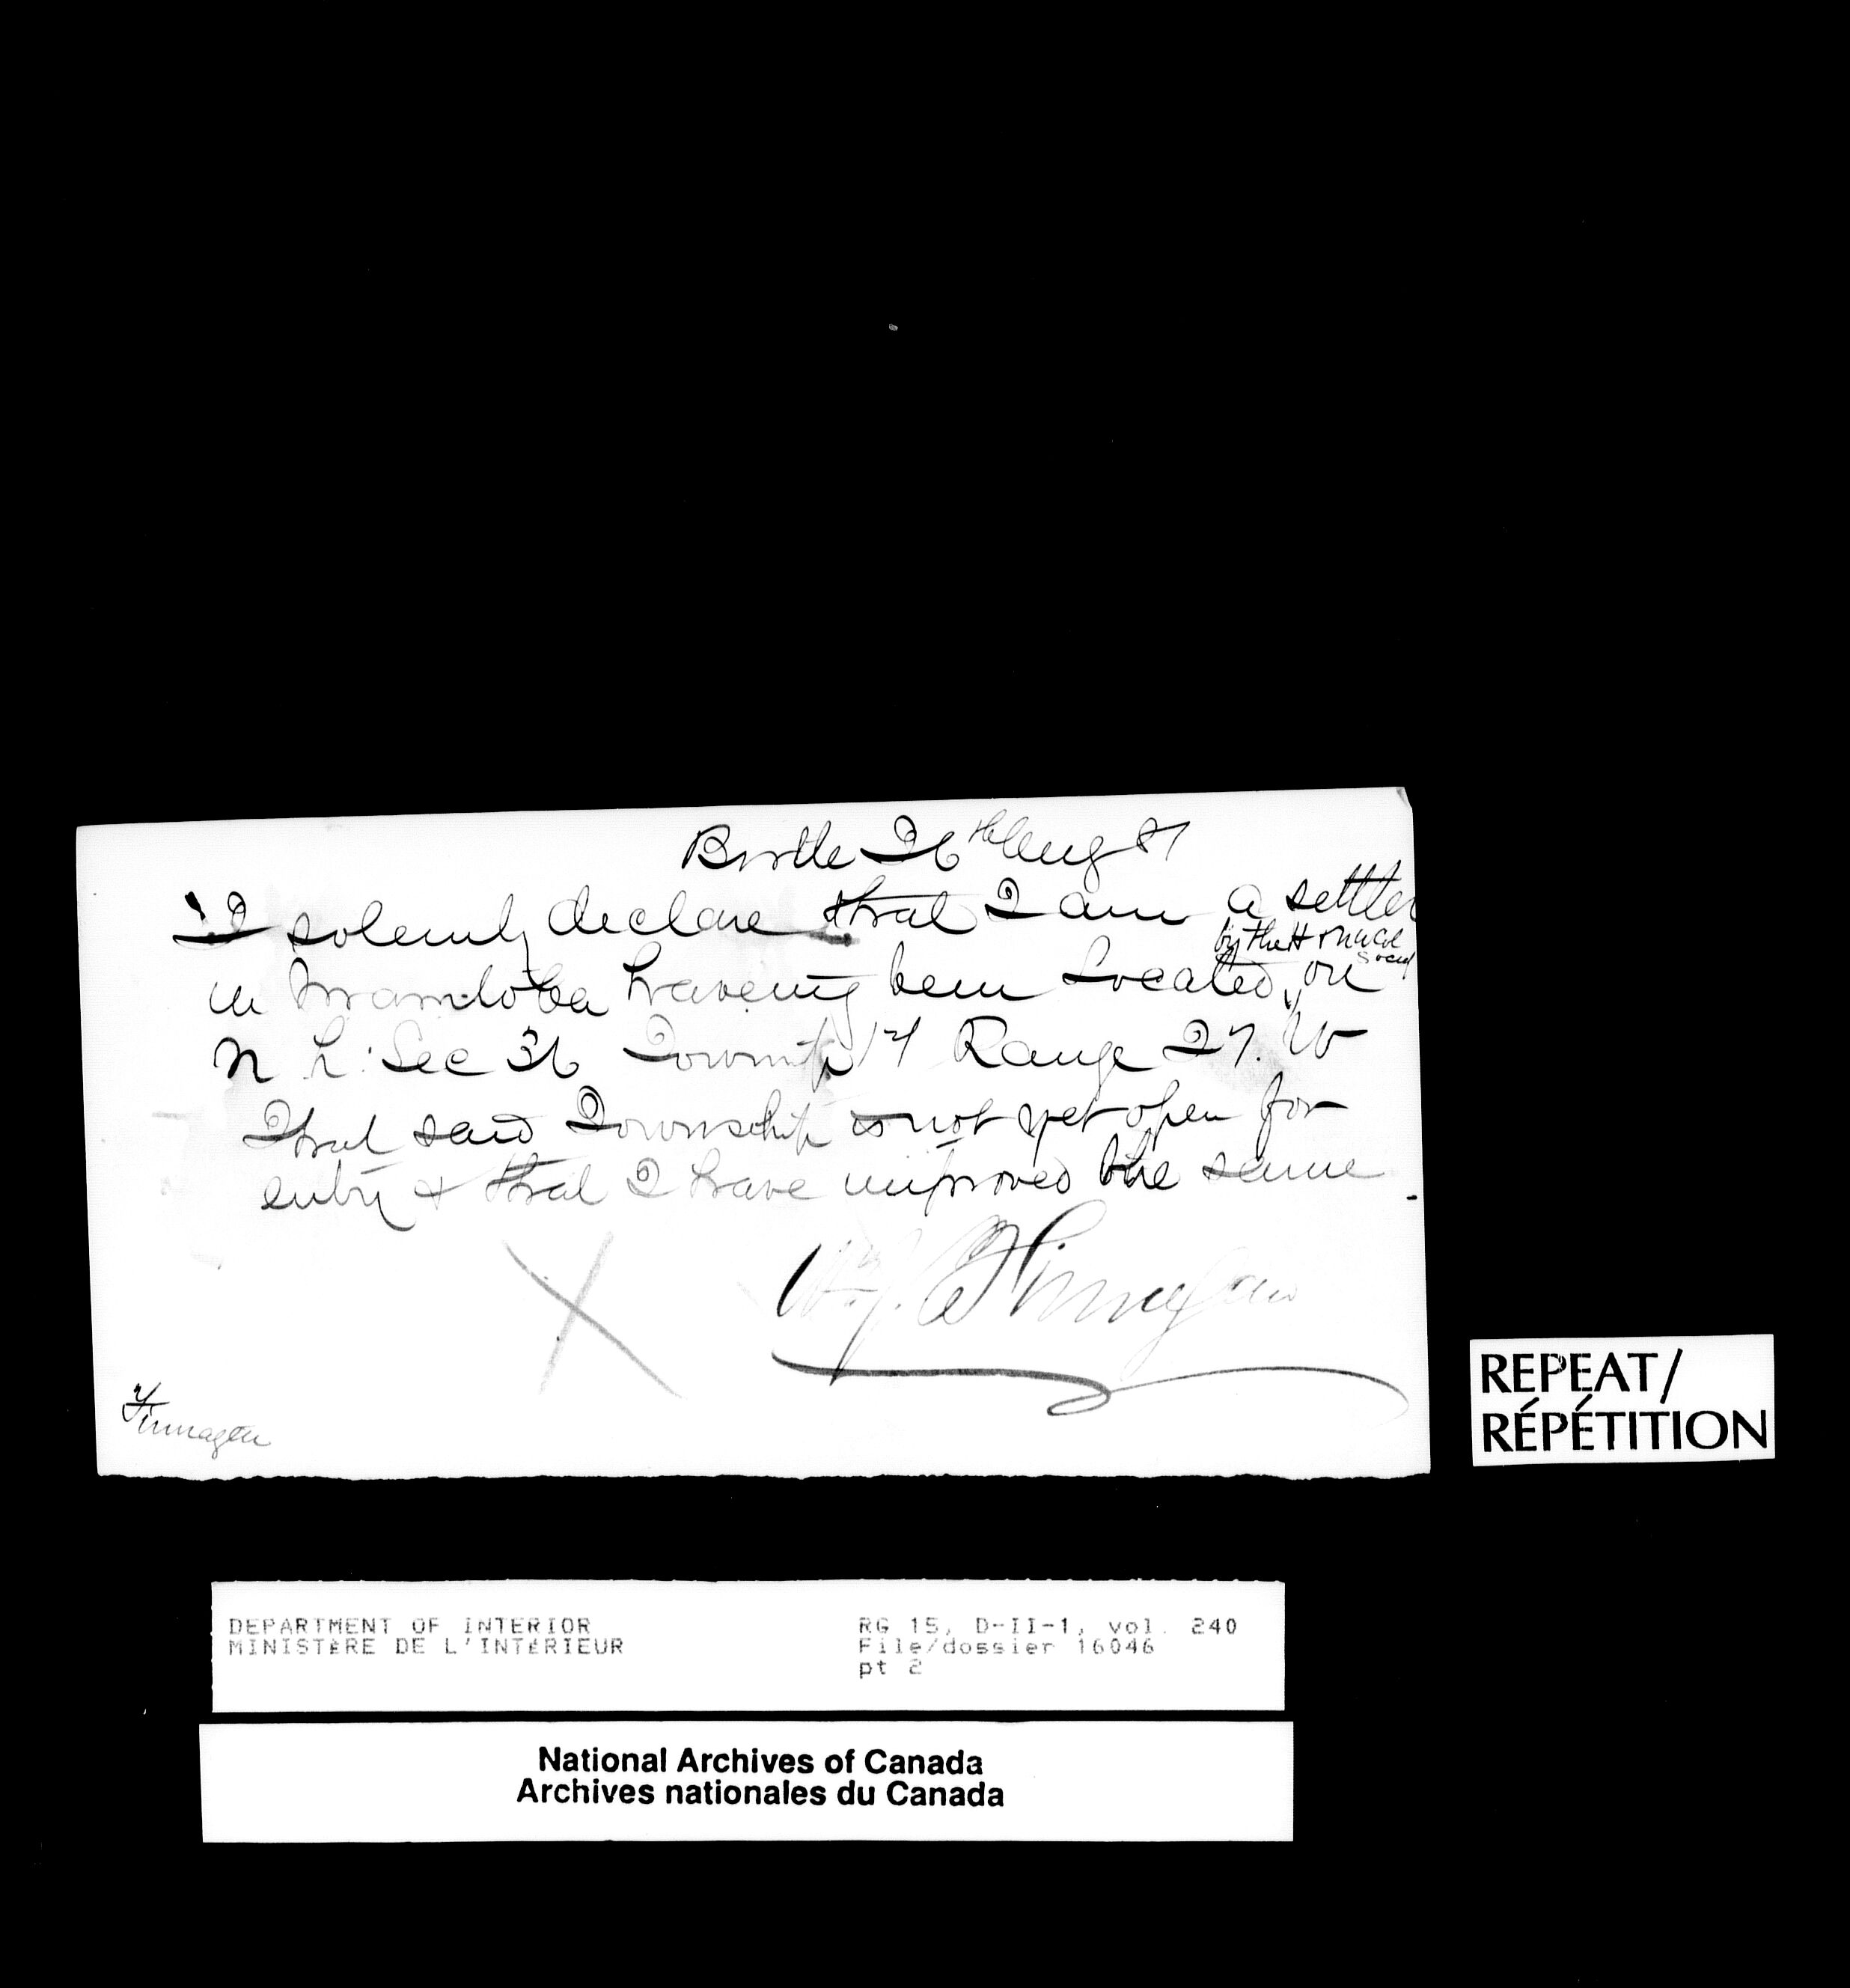 Birtle 26th Aug 81
I solemnly declare that I am a settler
by the H
in Manitoba having been Located on
N Sec 36 Townsp 17 Range 27. W
That said Townschip is not yet open for
entry & that I have improved the same
Finnegan
X
Finnagen
REPEAT/
RÉPÉTITION
DEPARTMENT OF INTERIOR
MINISTÈRE DE L'INTÉRIEUR
RG 15, D-II-1, vol. 240
File/dossier 16046
pt 2
National Archives of Canada
Archives nationales du Canada